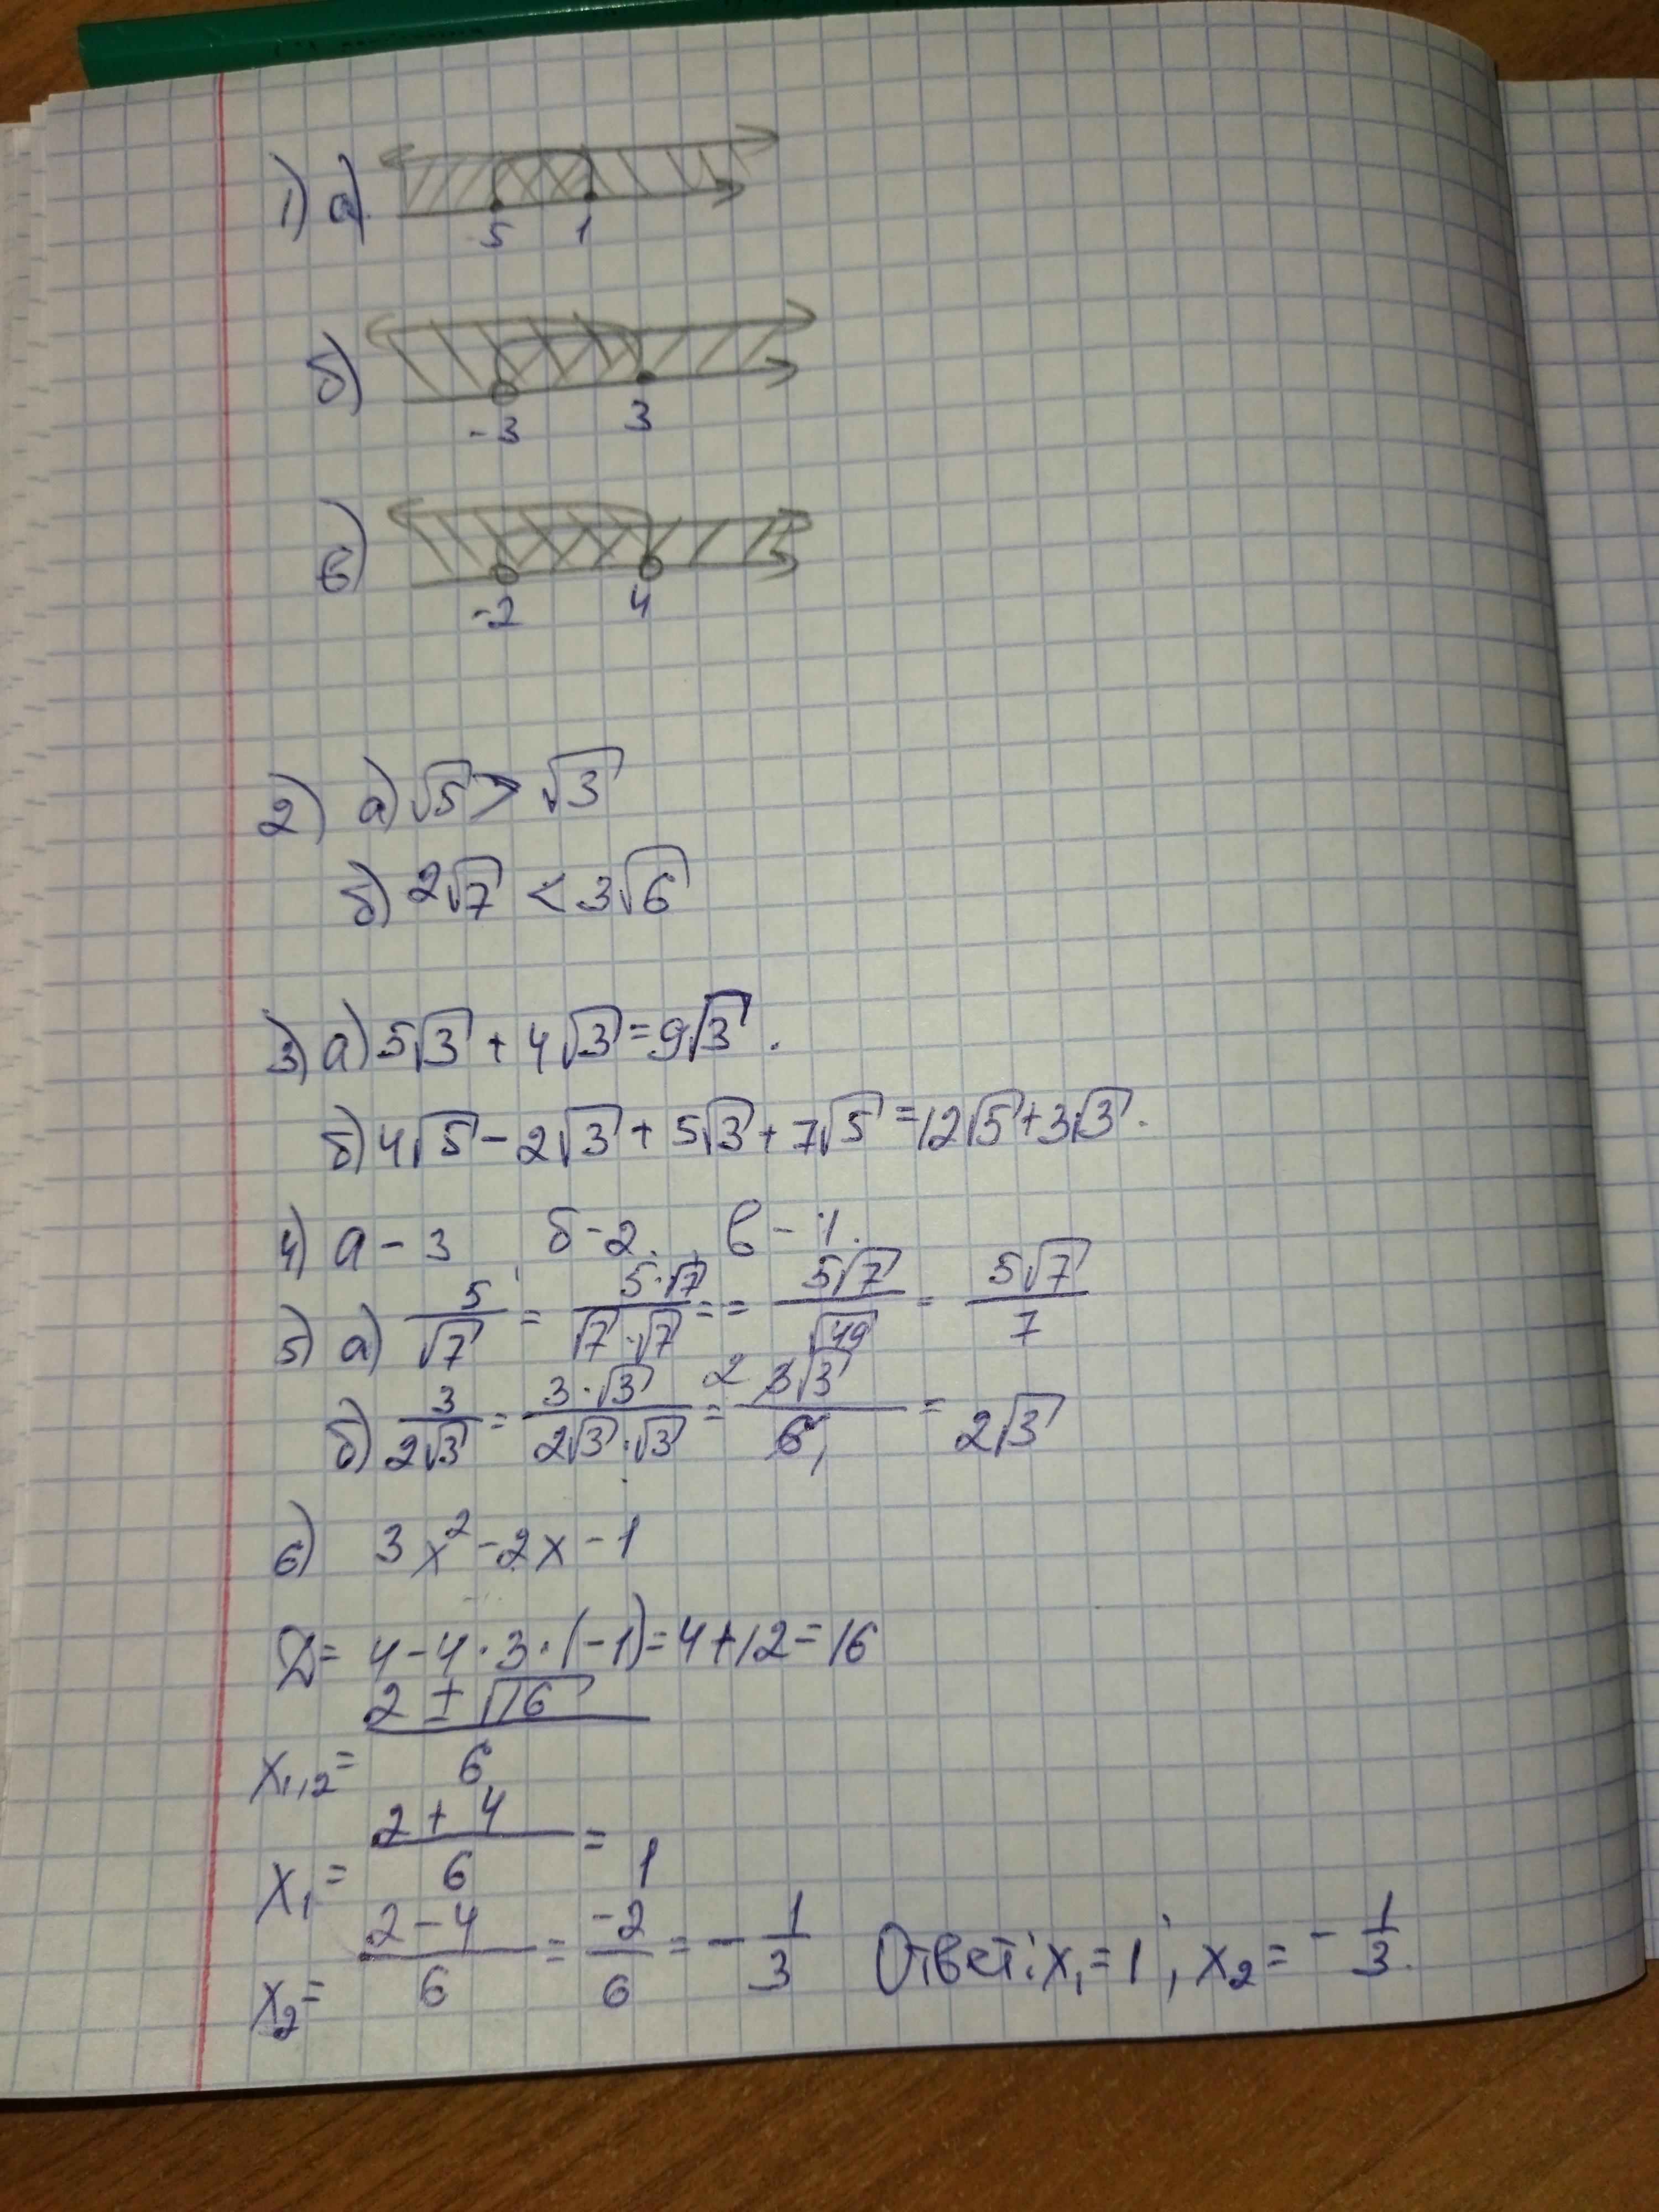 1) а)
5 1
б)
-3 3
в)
-2 4
2) а) √5 > √3
б) 2√7 < 3√6
3) а) 5√3 + 4√3 = 9√3.
б) 4√5 - 2√3 + 5√3 + 7√5 = 12√5 + 3√3.
4) а - 3 б - 2. в - 1.
5) а) 5/√7 = 5·√7/√7·√7 = = 5√7/√49 = 5√7/7
б) 3/2√3 = 3·√3/2√3·√3 = 2 3√3/6 1 = 2√3
6) 3x² - 2x - 1
D = 4 - 4·3·(-1) = 4 + 12 = 16
x₁,₂ = 2 ± √16/6
x₁ = 2 + 4/6 = 1
x₂ = 2 - 4/6 = -2/6 = - 1/3 Ответ: x₁ = 1; x₂ = - 1/3.